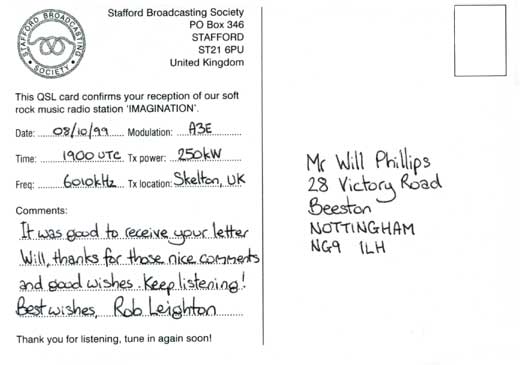 STAFFORD BROADCASTING
SOCIETY
Stafford Broadcasting Society
PO Box 346
STAFFORD
ST21 6PU
United Kingdom
This QSL card confirms your reception of our soft
rock music radio station 'IMAGINATION'.
Date: 08/10/99 Modulation: A3E
Time: 1900 UTC Tx power: 250kW
Freq: 6010kHz Tx location: Skelton, UK
Comments:
It was good to receive your letter
Will, thanks for those nice comments
and good wishes. Keep listening!
Best wishes, Rob Leighton
Thank you for listening, tune in again soon!
Mr Will Phillips
28 Victory Road
Beeston
NOTTINGHAM
NG9 1LH